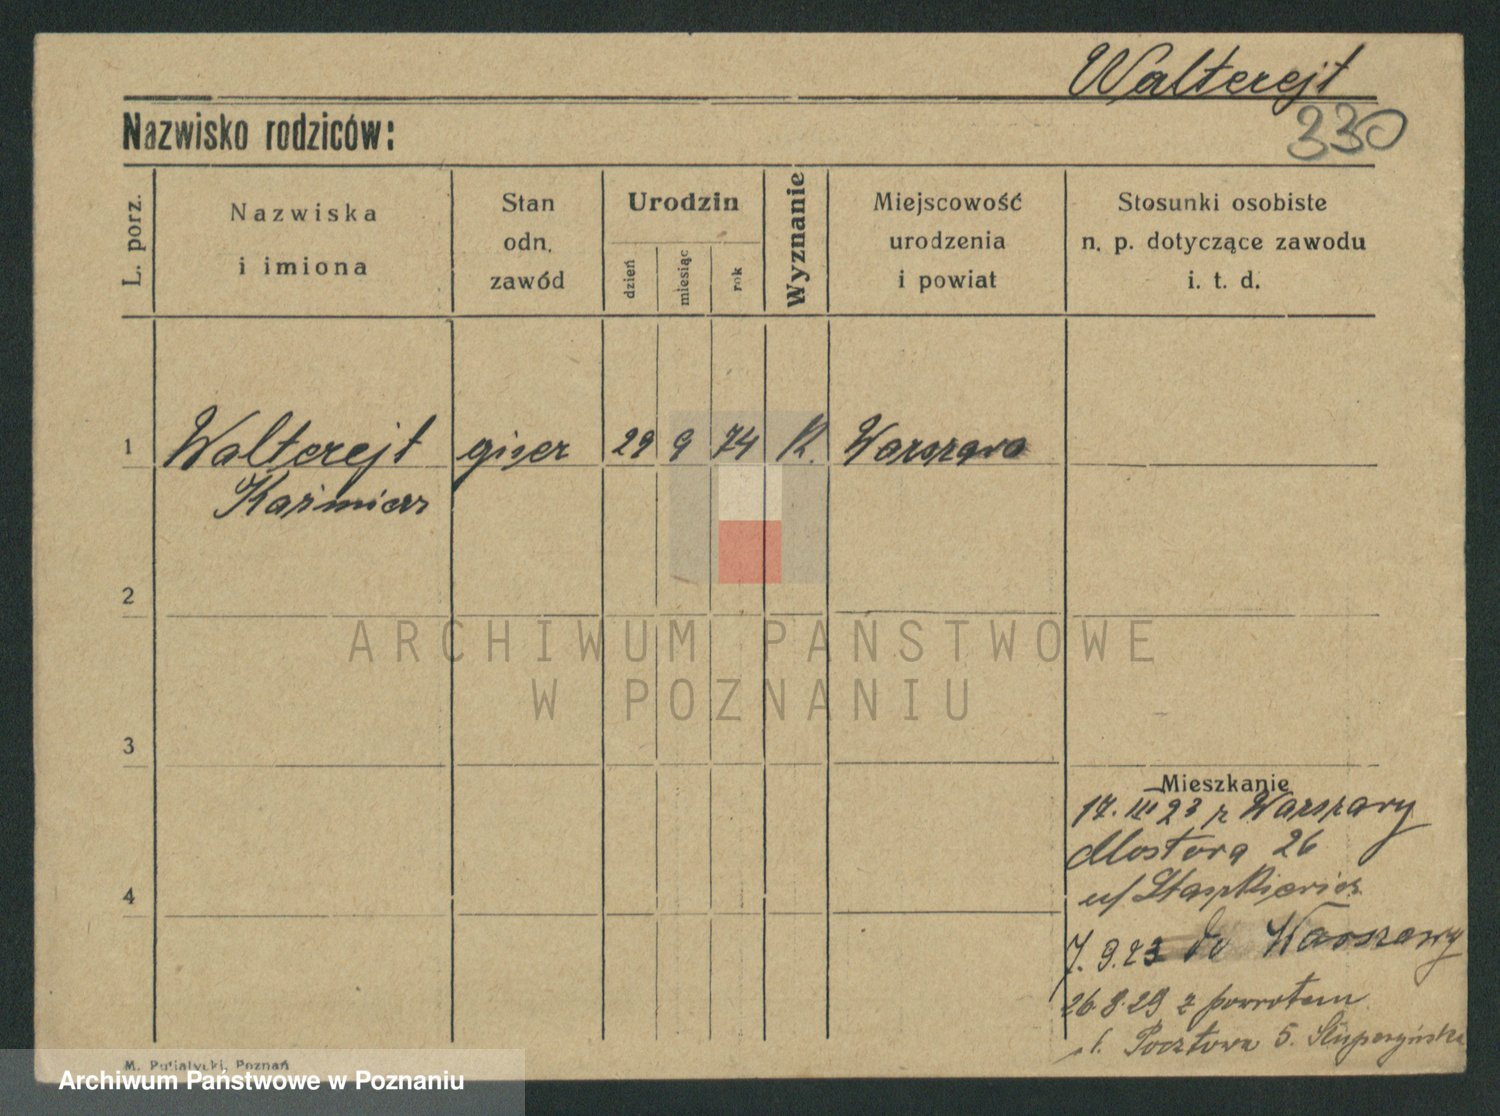 Walterejt
330
Nazwisko rodziców:
L. porz.
Nazwiska
i imiona
Stan
odn.
zawód
Urodzin
dzień
miesiąc
rok
Wyznanie
Miejscowość
urodzenia
i powiat
Stosunki osobiste
n. p. dotyczące zawodu
i. t. d.
1 Walterejt giser 29 9 74 K. Warszawa
Kaźmierz
2
ARCHIWUM PAŃSTWOWE
W POZNANIU
3
Mieszkanie
17. III 23 z Warszawy
Mostowa 26
u/
4
7. 9. 23 do Warszawy
26.8.29 z powrotem
Pocztowa 5.
M. Putiatycki, Poznań
Archiwum Państwowe w Poznaniu